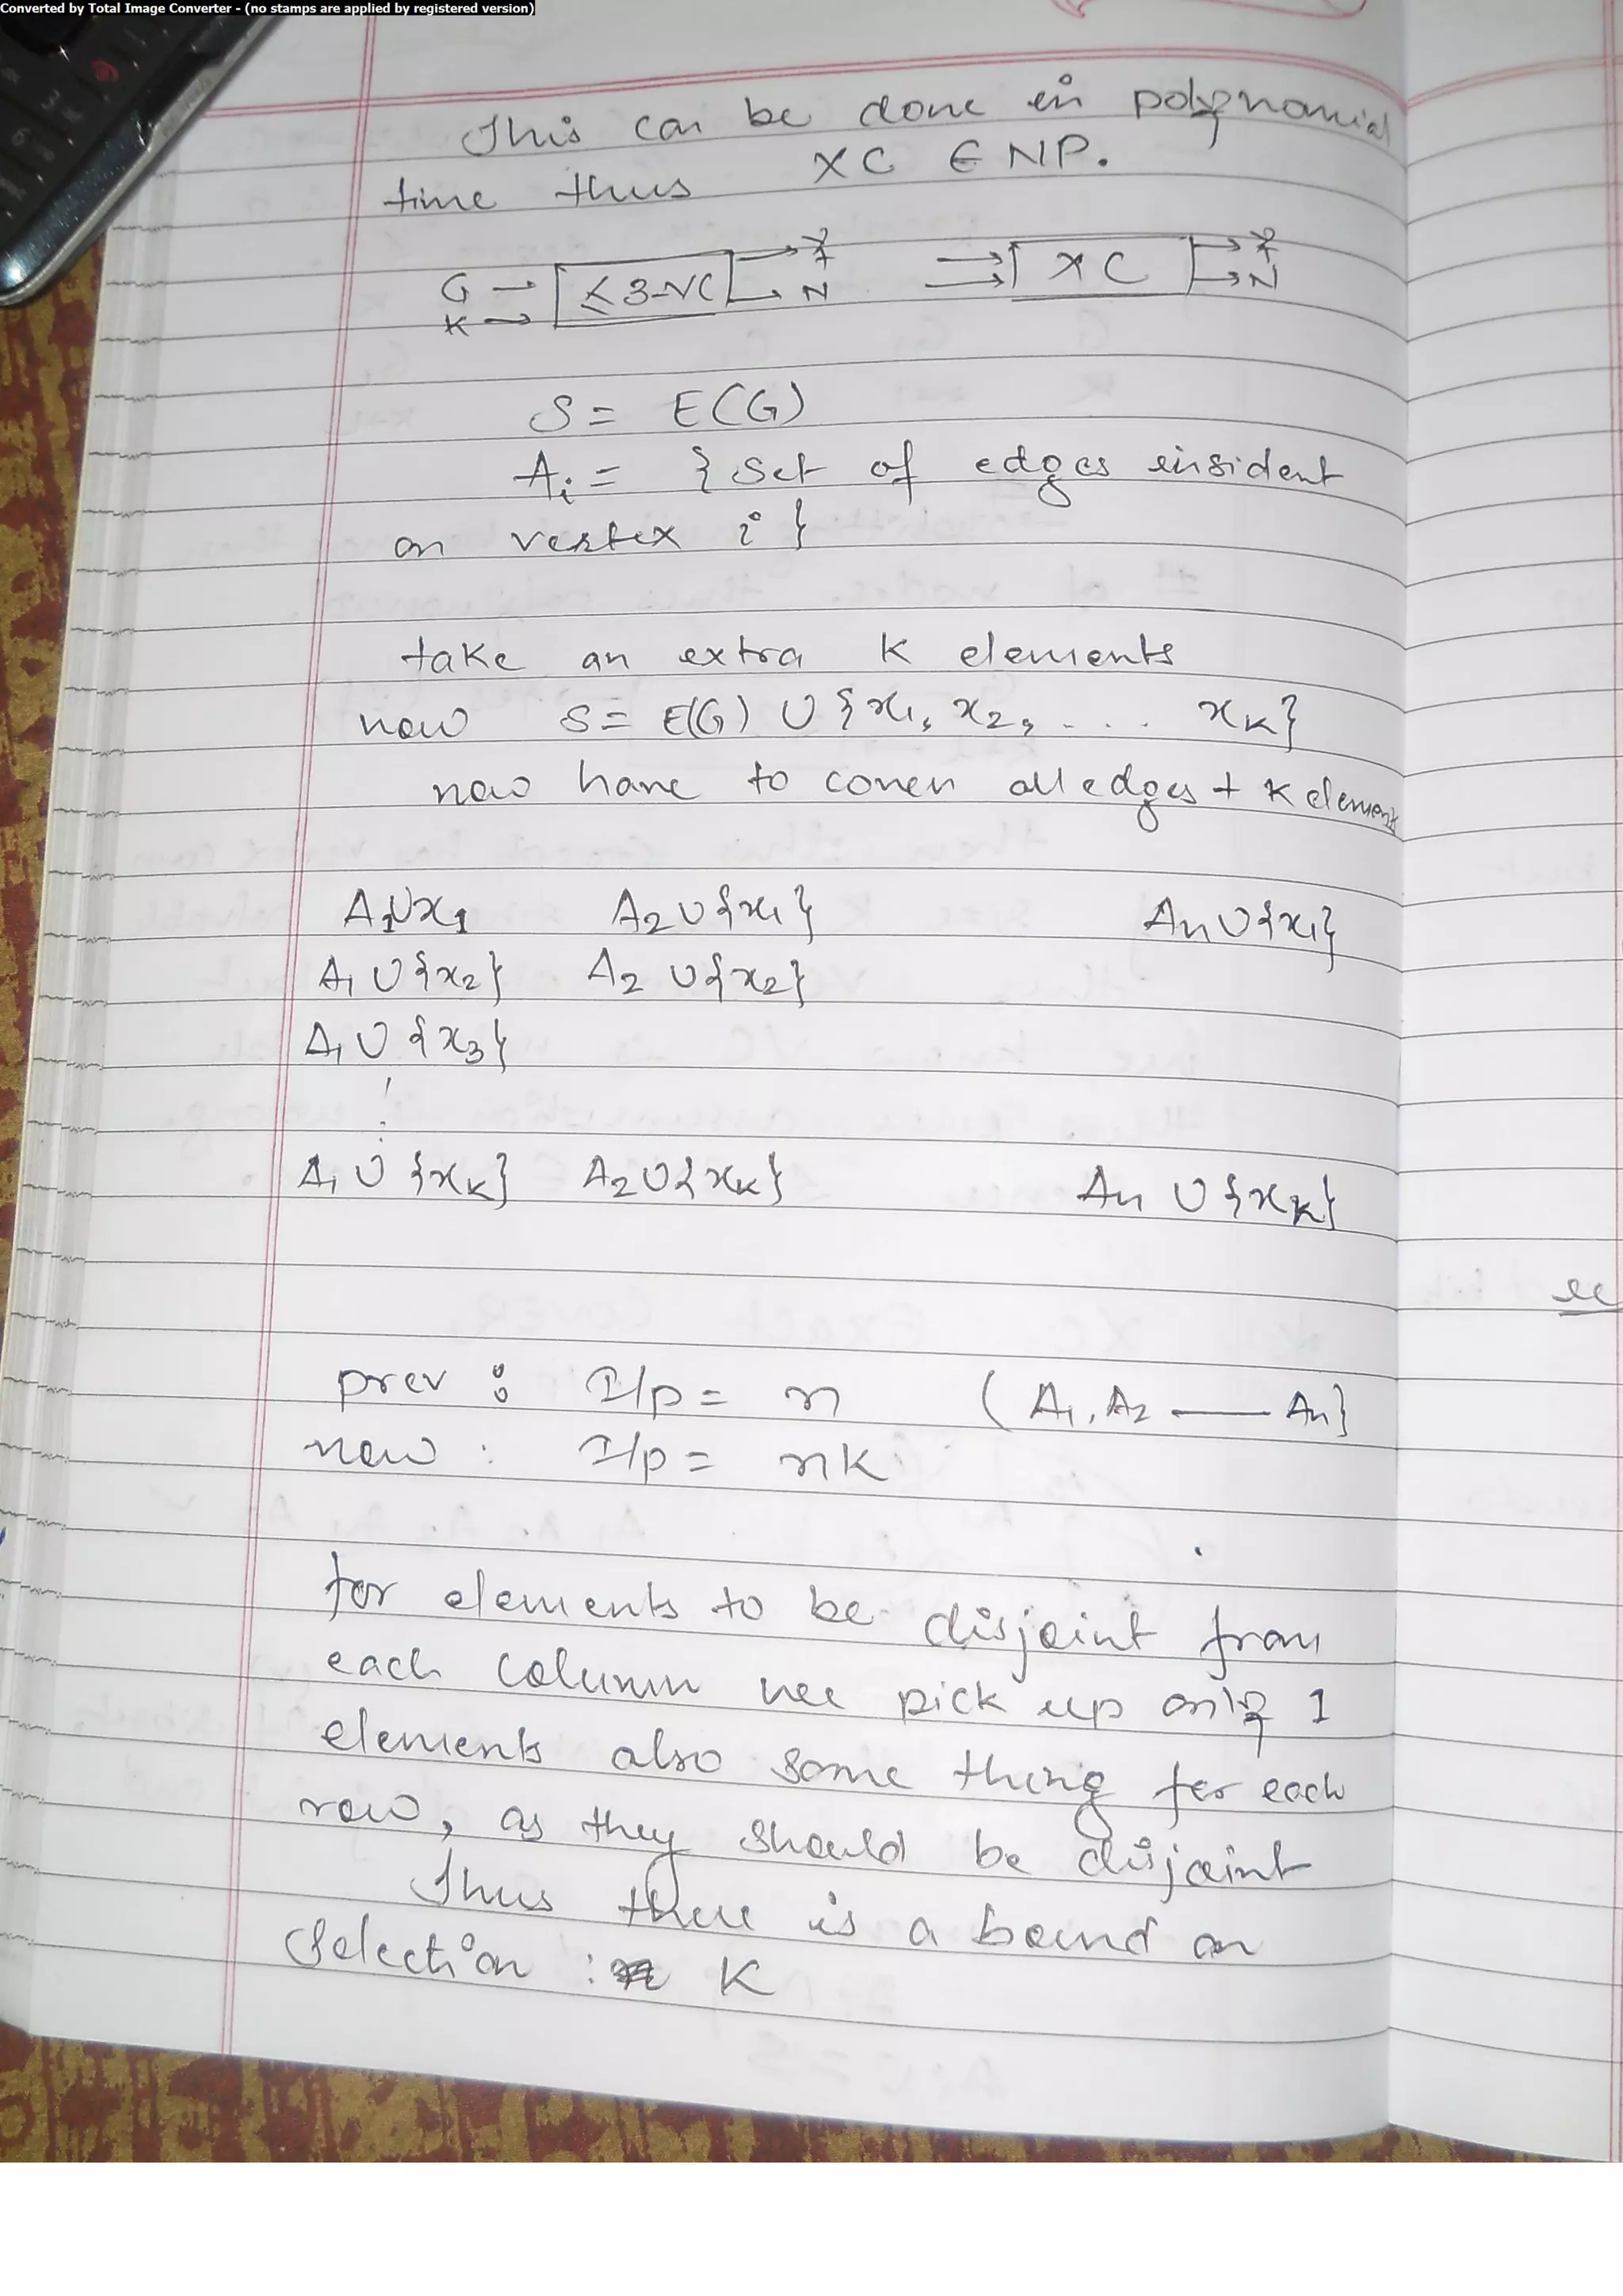 Converted by Total Image Converter - (no stamps are applied by registered version)
This can be done in polynomial
time thus XC ∈ NP.
G → ≤3-VC → Y → XC → Y
K → → N → → N
S = E(G)
Ai = {set of edges insident
on vertex i}
take an extra K elements
now S = E(G) ∪ {x1, x2, . . . xK}
now have to cover all edges + K element
A1∪x1 A2∪{x1} An∪{x1}
A1∪{x2} A2∪{x2}
A1∪{x3}
A1∪{xK} A2∪{xK} An∪{xK}
prev : I/p = n (A1, A2 — An}
now : I/p = nK
for elements to be disjoint from
each column we pick up only 1
elements also same thing for each
row, as they should be disjoint
Thus there is a bound on
selection : K